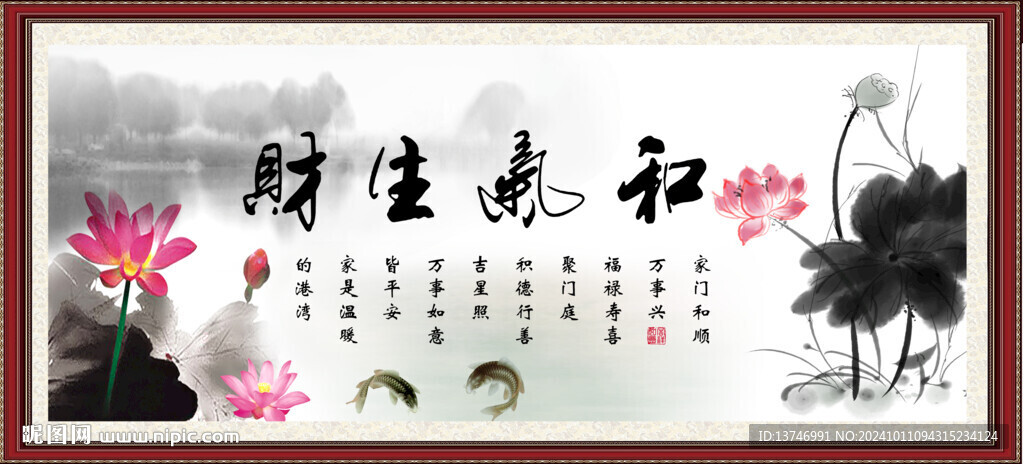 和氣生財
家门和顺
万事兴
福禄寿喜
聚门庭
积德行善
吉星照
万事如意
皆平安
家是温暖
的港湾
昵图网 www.nipic.com
ID:13746991 NO:20241011094315234124